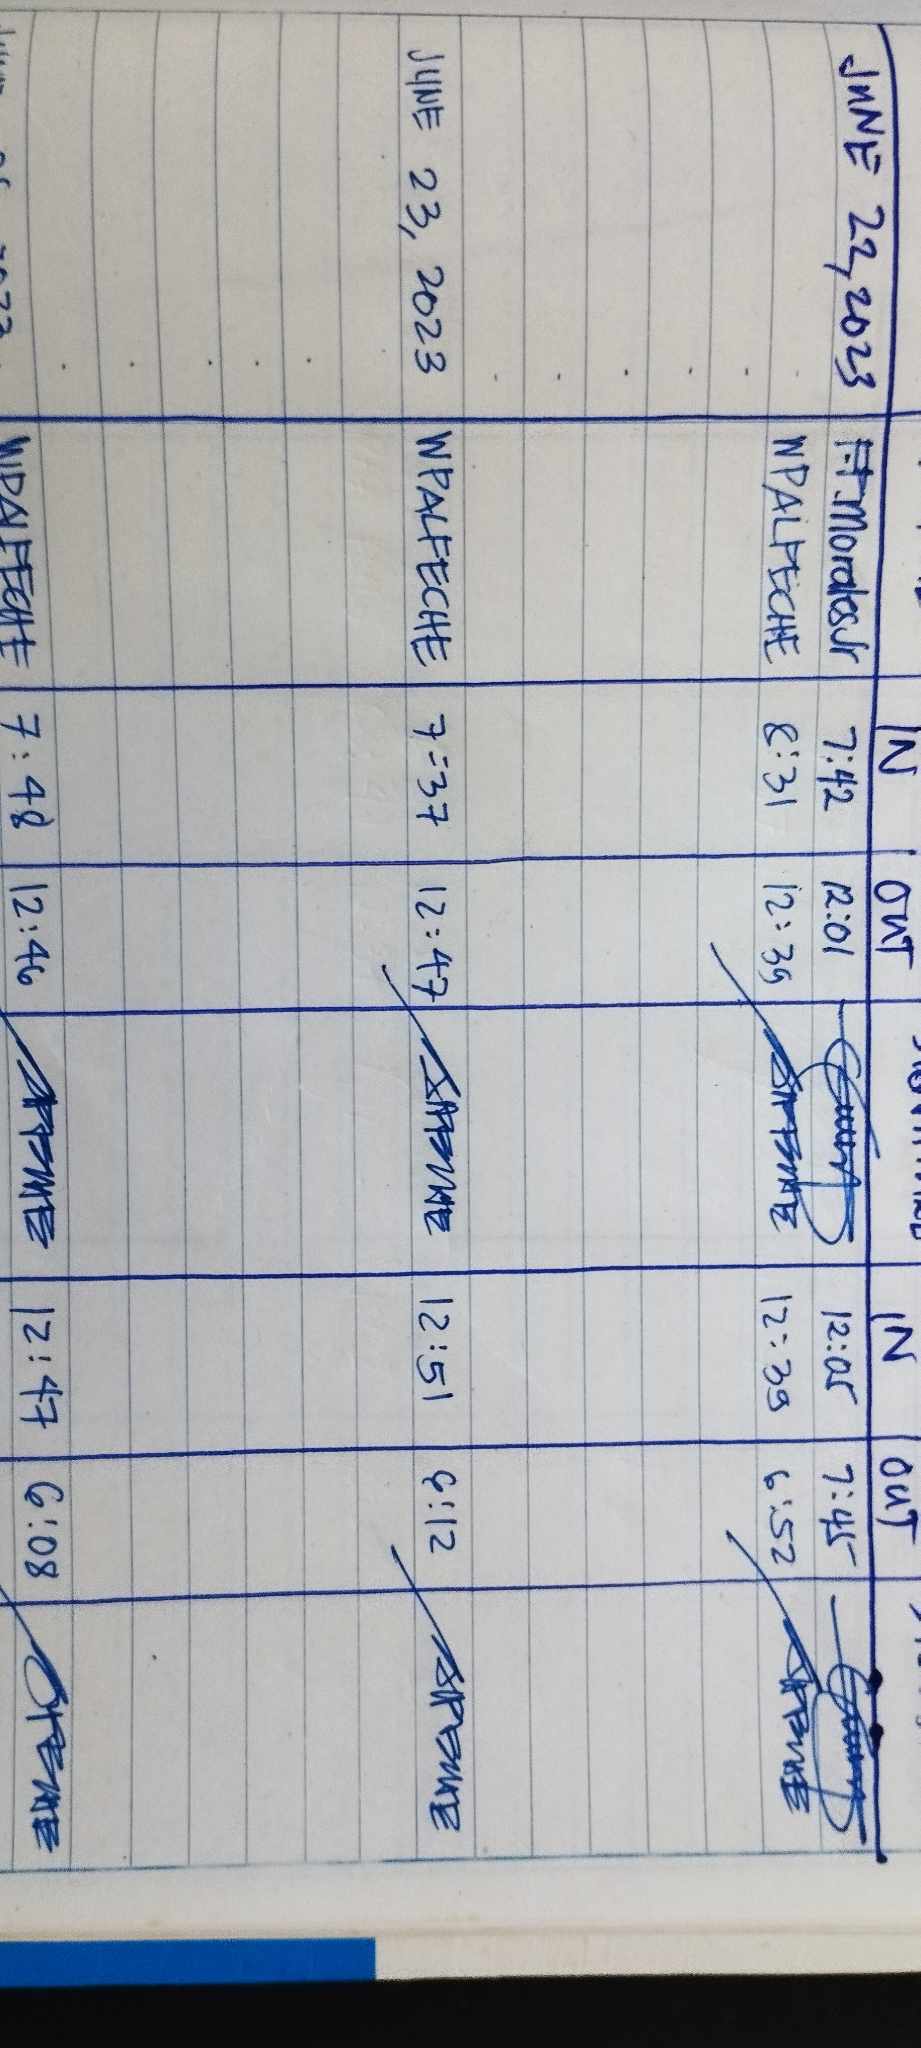 IN OUT IN OUT
JUNE 22, 2023 F.T. Morales Jr 7:42 12:01 12:05 7:45
WPALFECHE 8:31 12:39 12:39 6:52
JUNE 23, 2023 WPALFECHE 7:37 12:47 12:51 6:12
2023 WPALFECHE 7:48 12:46 12:47 6:08